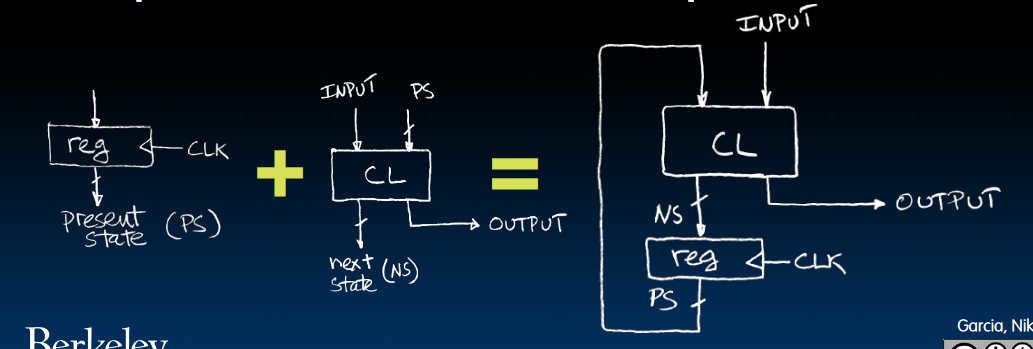 reg
CLK
present
state (PS)
+
INPUT PS
CL
OUTPUT
next
state (NS)
=
INPUT
CL
OUTPUT
NS
reg
CLK
PS
Berkeley
Garcia, Nik